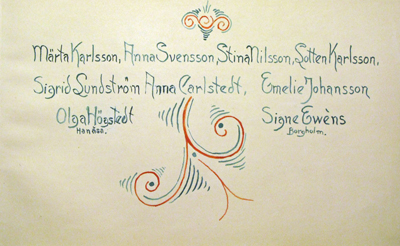 Märta Karlsson, Anna Svensson, Stina Nilsson, Lotten Karlsson,
Sigrid Lundström Anna Carlstedt, Emelie Johansson
Olga Högstedt Signe Ewèns
Hanåsa. Borgholm.